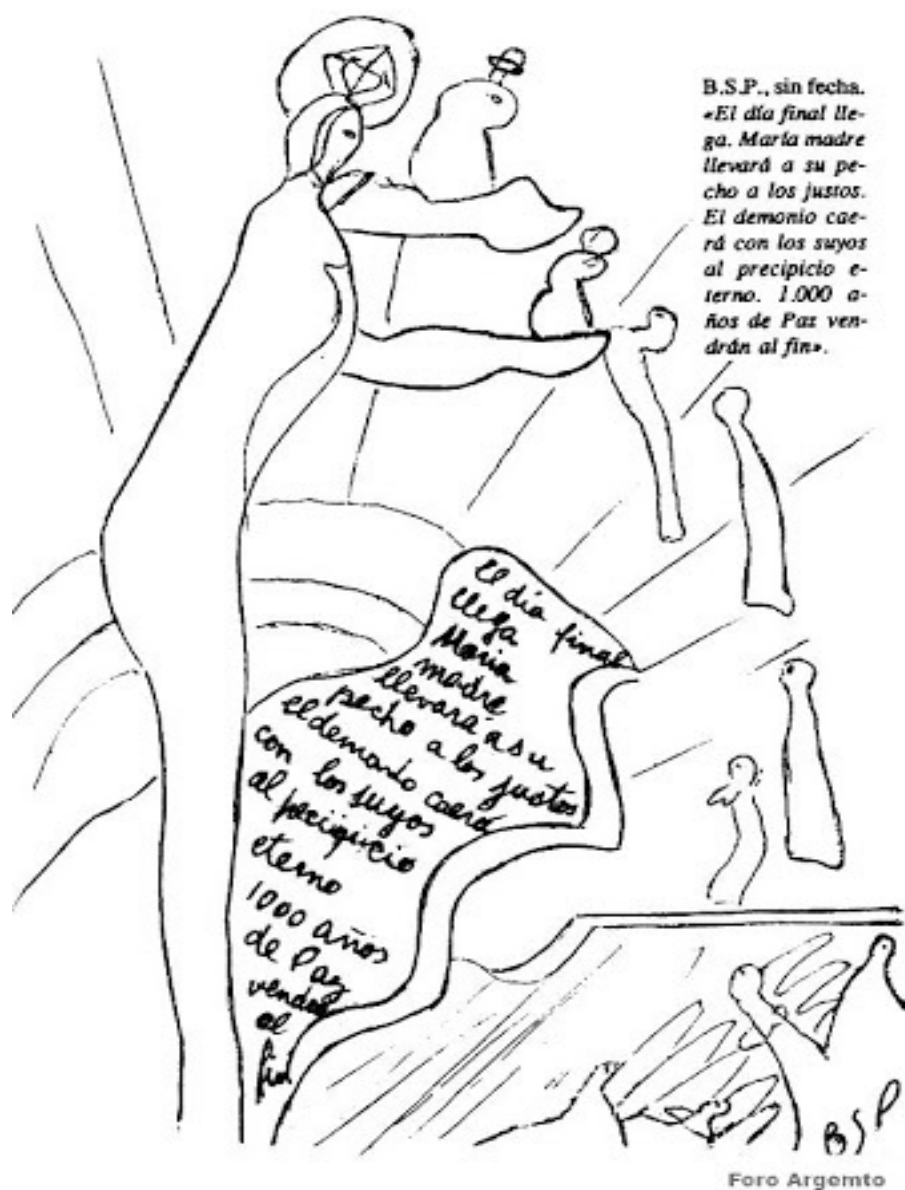 B.S.P., sin fecha.
«El día final lle-
ga. María madre
llevará a su pe-
cho a los justos.
El demonio cae-
rá con los suyos
al precipicio e-
terno. 1.000 a-
ños de Paz ven-
drán al fin».
El día final
llega
María
madre
llevará a su
pecho a los justos
el demonio caerá
con los suyos
al precipicio
eterno
1000 años
de Paz
vendrá
al
fin
BSP
Foro Argemto